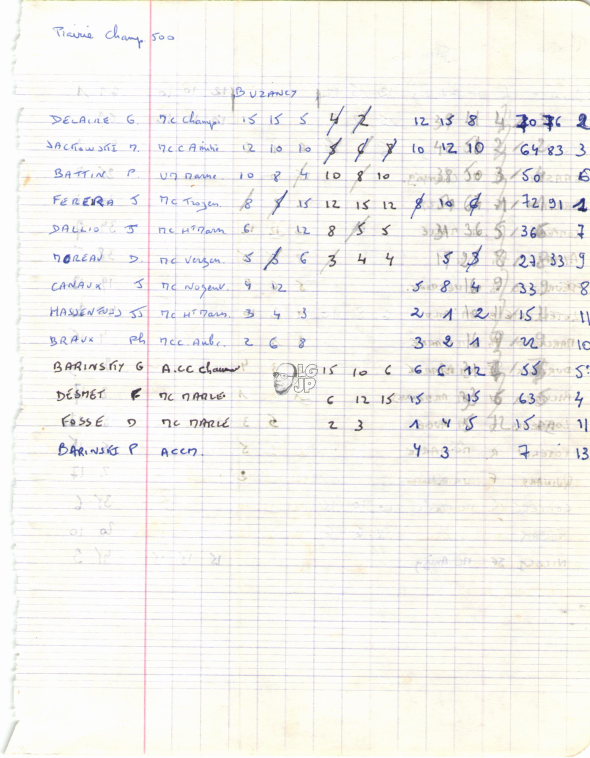 Prairie Champ 500
BUZANCY
DELAIRE G. MC Champi 15 15 5 4 2 12 15 8 70 76 2
JACKOWSKI MCC Aisne 12 10 10 5 6 8 10 12 10 64 83 3
BATTIN P. UM Marne 10 8 4 10 8 10 50 6
FEREIRA J MC Troyen 8 5 15 12 15 12 8 10 6 72 91 1
DALLIO J MC Hte Marn. 6 12 8 5 5 36 7
MOREAU D. MC Verzen. 5 3 6 3 4 4 5 3 27 33 9
CANAUX J MC Nogent 4 12 5 8 4 33 8
MC Hte Marn. 3 4 3 2 1 2 15 11
BRAUX Ph MCC. Aube. 2 6 8 3 2 1 22 10
BARINSKY G A.CC Chaumon 15 10 6 6 6 12 55 5
DESMET F MC MARLE 6 12 15 15 15 63 4
FOSSE D MC MARLE 2 3 1 4 5 15 11
BARINSKI P ACCM. 4 3 7 13
LG
JP